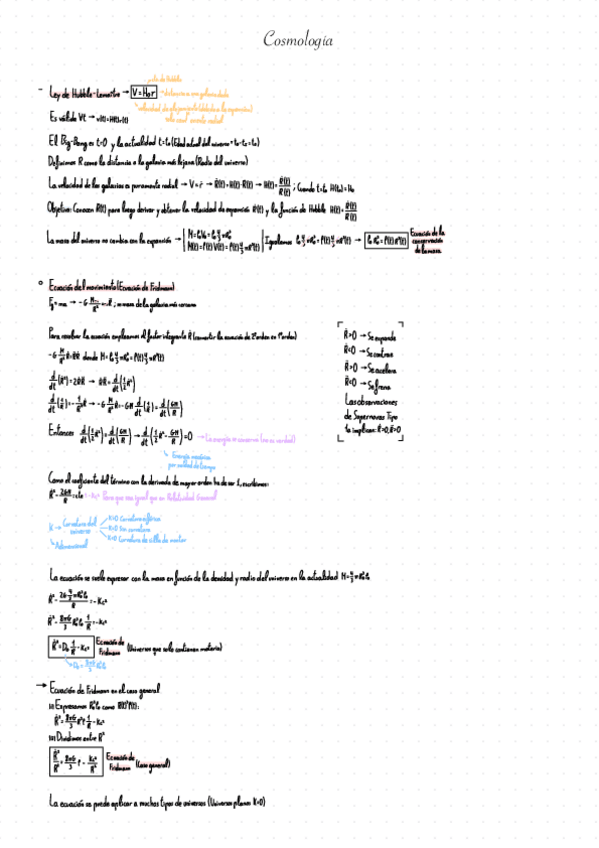 Cosmología
cte de Hubble
- Ley de Hubble-Lemaître → V = H₀r → distancia a una galaxia dada
velocidad de alejamiento (debida a la expansión)
solo cuenta radial
Es válida ∀t → v(t)=H(t)·r(t)
El Big-Bang es t=0 y la actualidad t=t₀
Definimos R como la distancia a la galaxia más lejana (Radio del universo)
La velocidad de las galaxias es puramente radial → V = ṙ → Ṙ(t)=H(t)·R(t) → H(t)= Ṙ(t)/R(t) ; Cuando t=t₀ H(t₀)=H₀
Objetivo: Conocer R(t) para luego derivar y obtener la velocidad de expansión Ṙ(t) y la función de Hubble H(t)= Ṙ(t)/R(t)
La masa del universo no cambia con la expansión → M=ρ₀V₀=ρ₀ 4/3 πR₀³
M(t)=ρ(t)V(t)=ρ(t) 4/3 πR³(t)
Igualamos ρ₀ 4/3 πR₀³=ρ(t) 4/3 πR³(t) → ρ₀R₀³=ρ(t)R³(t) Ecuación de la conservación de la masa
Ecuación del movimiento (Ecuación de Fridmann)
m masa de la galaxia más cercana
Para resolver la ecuación empleamos el factor integrante Ṙ (convertir la ecuación de 2º orden en 1º orden)
-G M/R² Ṙ=R̈Ṙ donde M=ρ₀ 4/3 πR₀³=ρ(t) 4/3 πR³(t)
d/dt(Ṙ²)=2ṘR̈ → ṘR̈=d/dt(1/2 Ṙ²)
d/dt(1/R)=-1/R² Ṙ → -G M/R² Ṙ=GM d/dt(1/R)=d/dt(GM/R)
Entonces d/dt(1/2 Ṙ²)=d/dt(GM/R) → d/dt(1/2 Ṙ²-GM/R)=0 → La energía se conserva (no es verdad)
Energía mecánica
por unidad de tiempo
Ṙ>0 → Se expande
Ṙ<0 → Se contrae
R̈>0 → Se acelera
R̈<0 → Se frena
Las observaciones
de Supernovas Tipo
Ia implican: Ṙ>0, R̈>0
Como el coeficiente del término con la derivada de mayor orden ha de ser 1, escribimos:
Ṙ²-2GM/R=cte=-Kc² Para que sea igual que en Relatividad General
K → Curvatura del universo
K>0 Curvatura esférica
K=0 Sin curvatura
K<0 Curvatura de silla de montar
Adimensional
La ecuación se suele expresar con la masa en función de la densidad y radio del universo en la actualidad M=4/3 πR₀³ρ₀
Ṙ²-2G 4/3 πR₀³ρ₀/R=-Kc²
Ṙ²-8πG/3 R₀³ρ₀ 1/R=-Kc²
Ṙ²=D₀ 1/R-Kc² Ecuación de Fridmann (Universos que solo contienen materia)
D₀=8πG/3 R₀³ρ₀
→ Ecuación de Fridmann en el caso general
Expresamos R₀³ρ₀ como R(t)³ρ(t):
Ṙ²=8πG/3 R³ρ 1/R-Kc²
Dividimos entre R²
Ṙ²/R²=8πG/3 ρ - Kc²/R² Ecuación de Fridmann (caso general)
La ecuación se puede aplicar a muchos tipos de universos (Universos planos K=0)